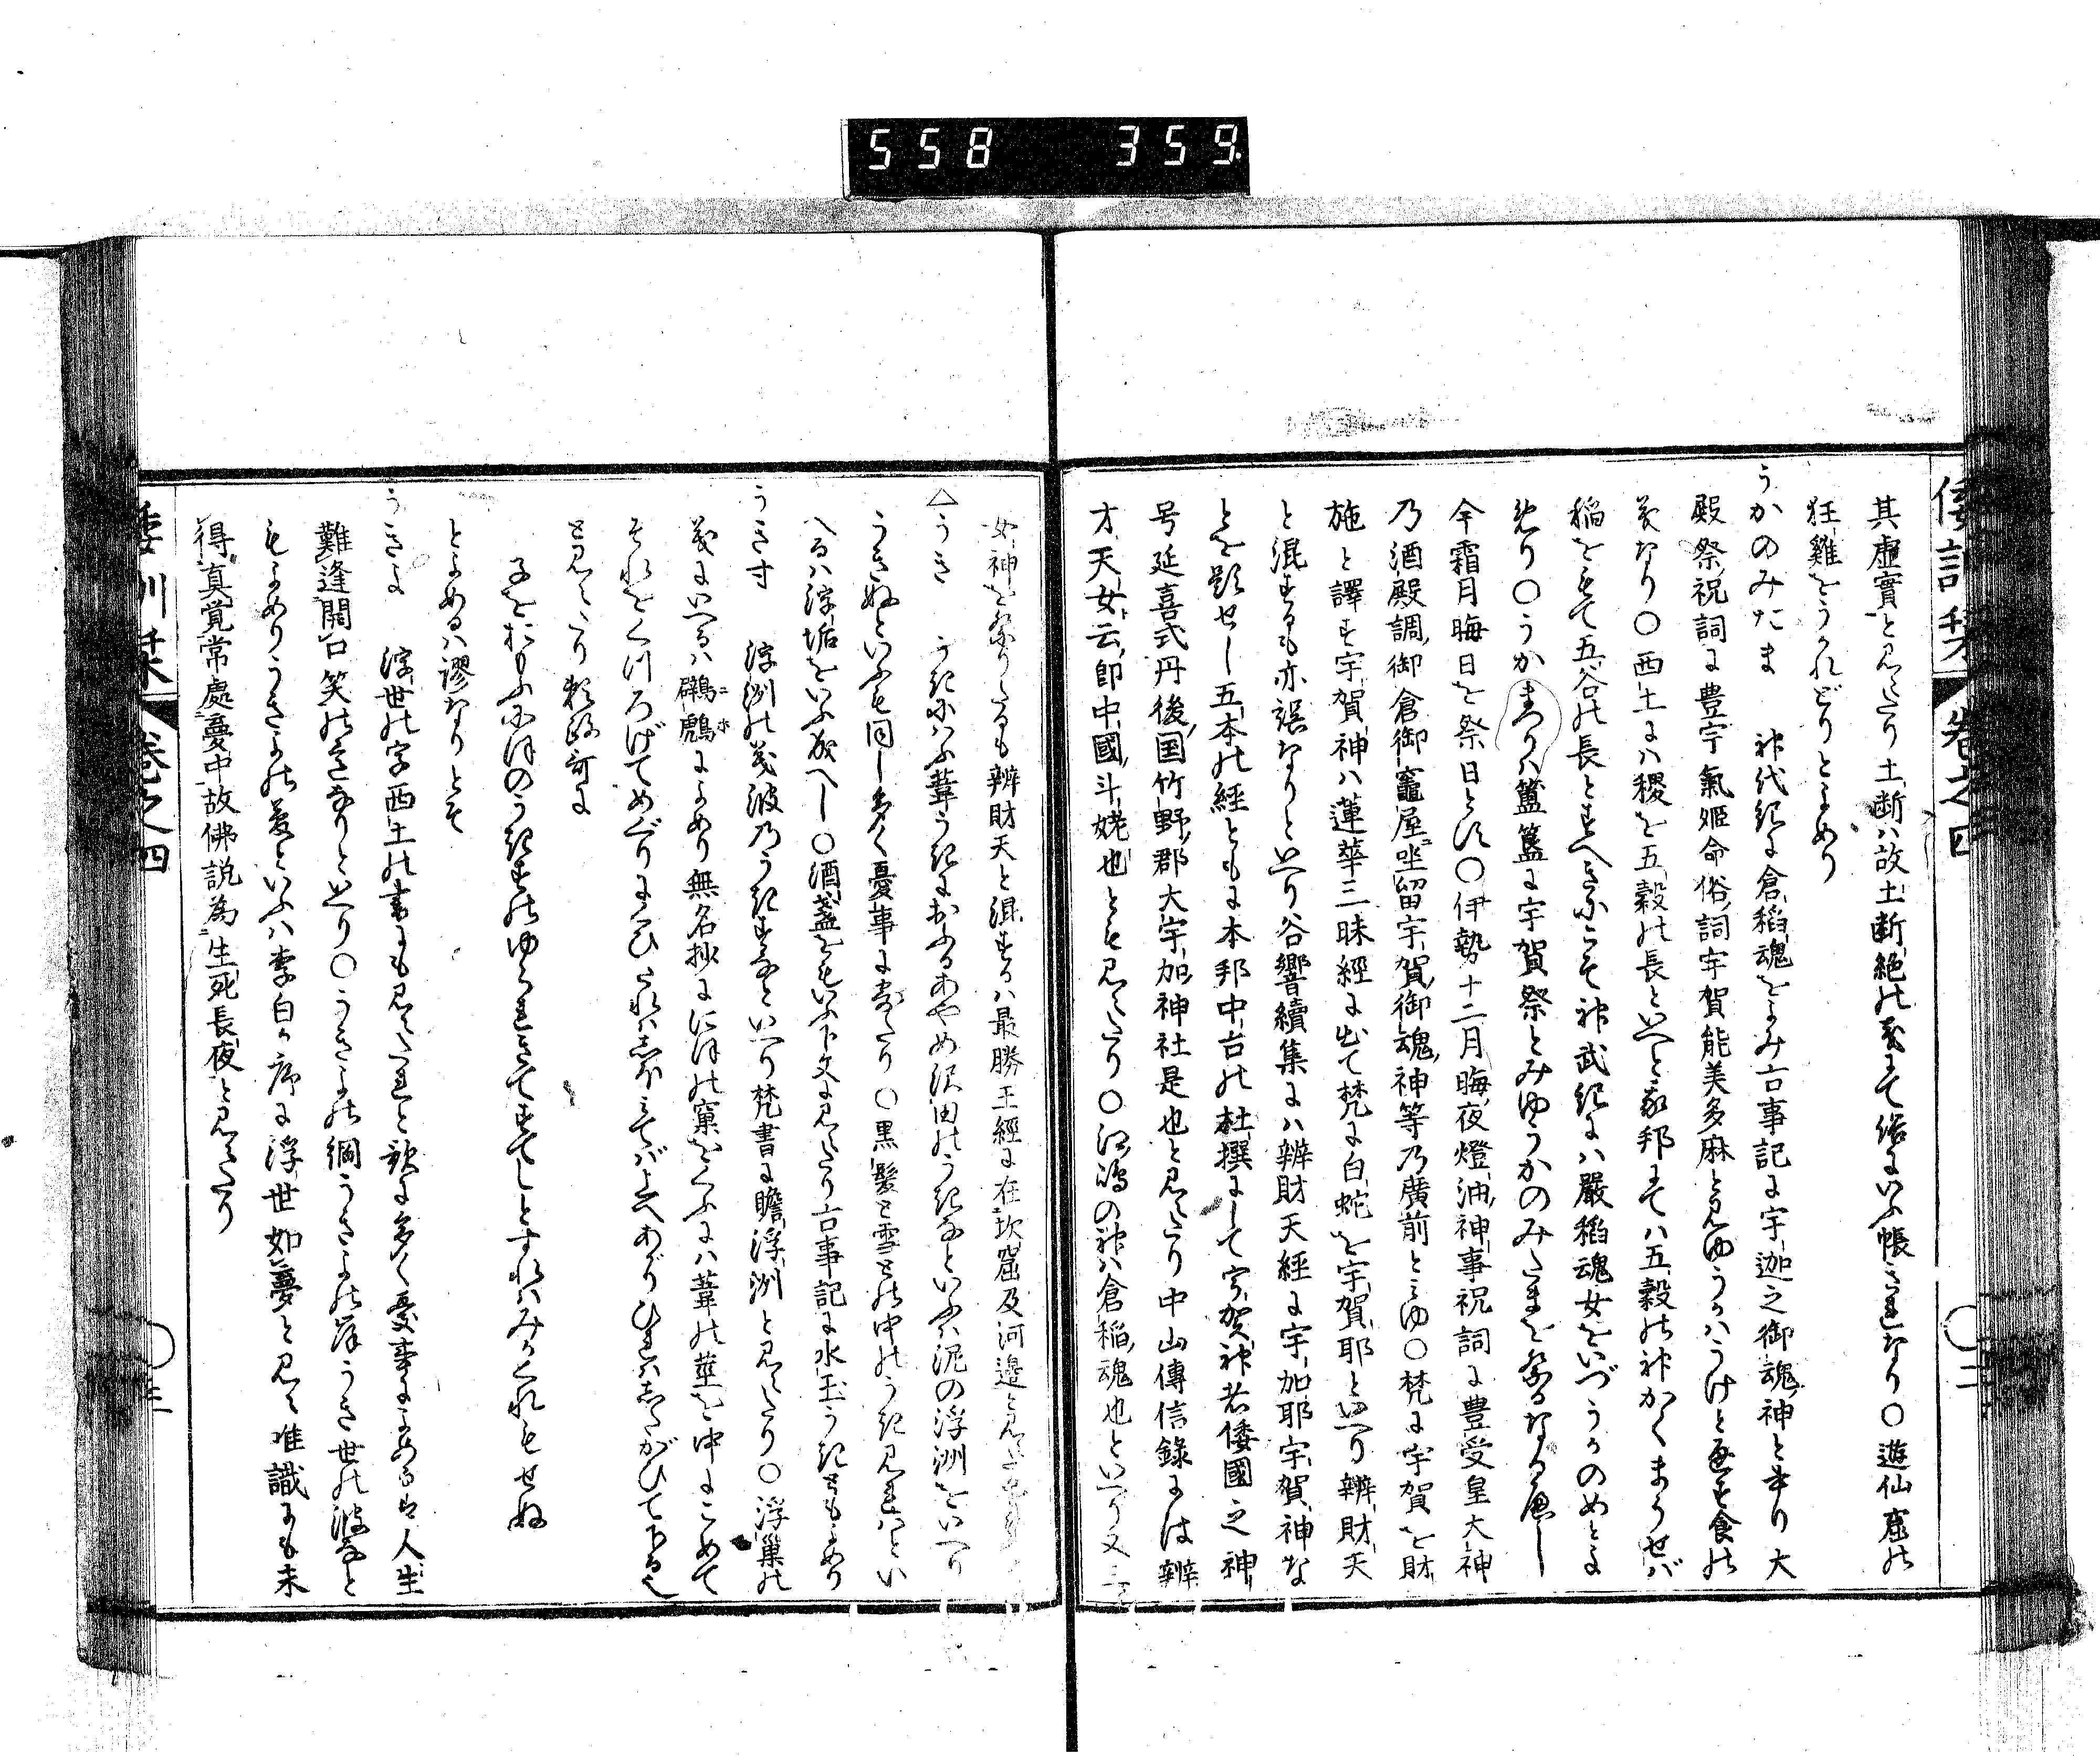 558 359
倭訓栞 卷之四 〇二
其虚實と見えたり土断ハ故土断絶の義にて俗にいふ帳きれなり〇遊仙窟に
狂雞をうかれどりとよめり
うかのみたま 神代紀に倉稻魂をよみ古事記に宇迦之御魂神と書り大
殿祭祝詞に豊宇氣姫命俗詞宇賀能美多麻と見ゆうかハうけと通ふ食の
義なり〇西土にハ稷を五穀の長といへと我邦にてハ五穀の神かくまうせバ
稲をもて五谷の長とすへきにこそ神武紀にハ嚴稻魂女をいづうかのめとよ
めり〇うかまつりハ簠簋に宇賀祭とみゆうかのみたまを祭るなるへし
今霜月晦日を祭日とす〇伊勢十二月晦夜燈油神事祝詞に豊受皇大神
乃酒殿調御倉御竈屋坐留宇賀御魂神等乃廣前とみゆ〇梵に宇賀を財
施と譯す宇賀神ハ蓮華三昧經に出て梵に白蛇を宇賀耶といへり辨財天
と混するも亦誤なりといへり谷響續集にハ辨財天經に宇加耶宇賀神な
とを題せし五本の経ともに本邦中古の杜撰にして宇賀神者倭國之神
号延喜式丹後国竹野郡大宇加神社是也と見えたり中山傳信錄には辨
才天女云即中國斗姥也とも見えたり〇江嶋の神ハ倉稲魂也といへり又
女神を祭りたるも辨財天と混するハ最勝王經に在坎窟及河邊と見えた
△うき うきにハふ葦うきにおふるあやめ沢田のうきなといふハ泥の浮洲をいへり
うきぬといふも同し多く憂事に寄たり〇黒髮と雪との中のうき見れハとい
へるハ浮垢をいふ成へし〇酒盞をもいふ下文に見えたり古事記に水玉うきともよめり
うきす 浮洲の義波乃うきすなといへり梵書に贍浮洲と見えたり〇浮巣の
義にいへるハ鸊鷉ニホによめり無名抄ににほの窠をくふにハ葦の莖を中にこめて
それをくつろげてめぐりにくひたれハ志ほみてバ上へあがりひれハ志たがひて下る也
と見えたり頼政哥に
子をおもふにほのうきすのゆられきてすてしとすれハみかくれもせぬ
とよめるハ謬なりとそ
うきよ 浮世の字西土の書にも見えたれと歌に多く憂事によめるは人生
難逢開口笑の意なりといへり〇うきよの綱うきよの岸うき世の波なと
もよめりうきよの夢といふハ李白か序に浮世如夢と見え唯識にも未
得真覚常處夢中故佛説為生死長夜と見えたり
倭訓栞 卷之四 〇三